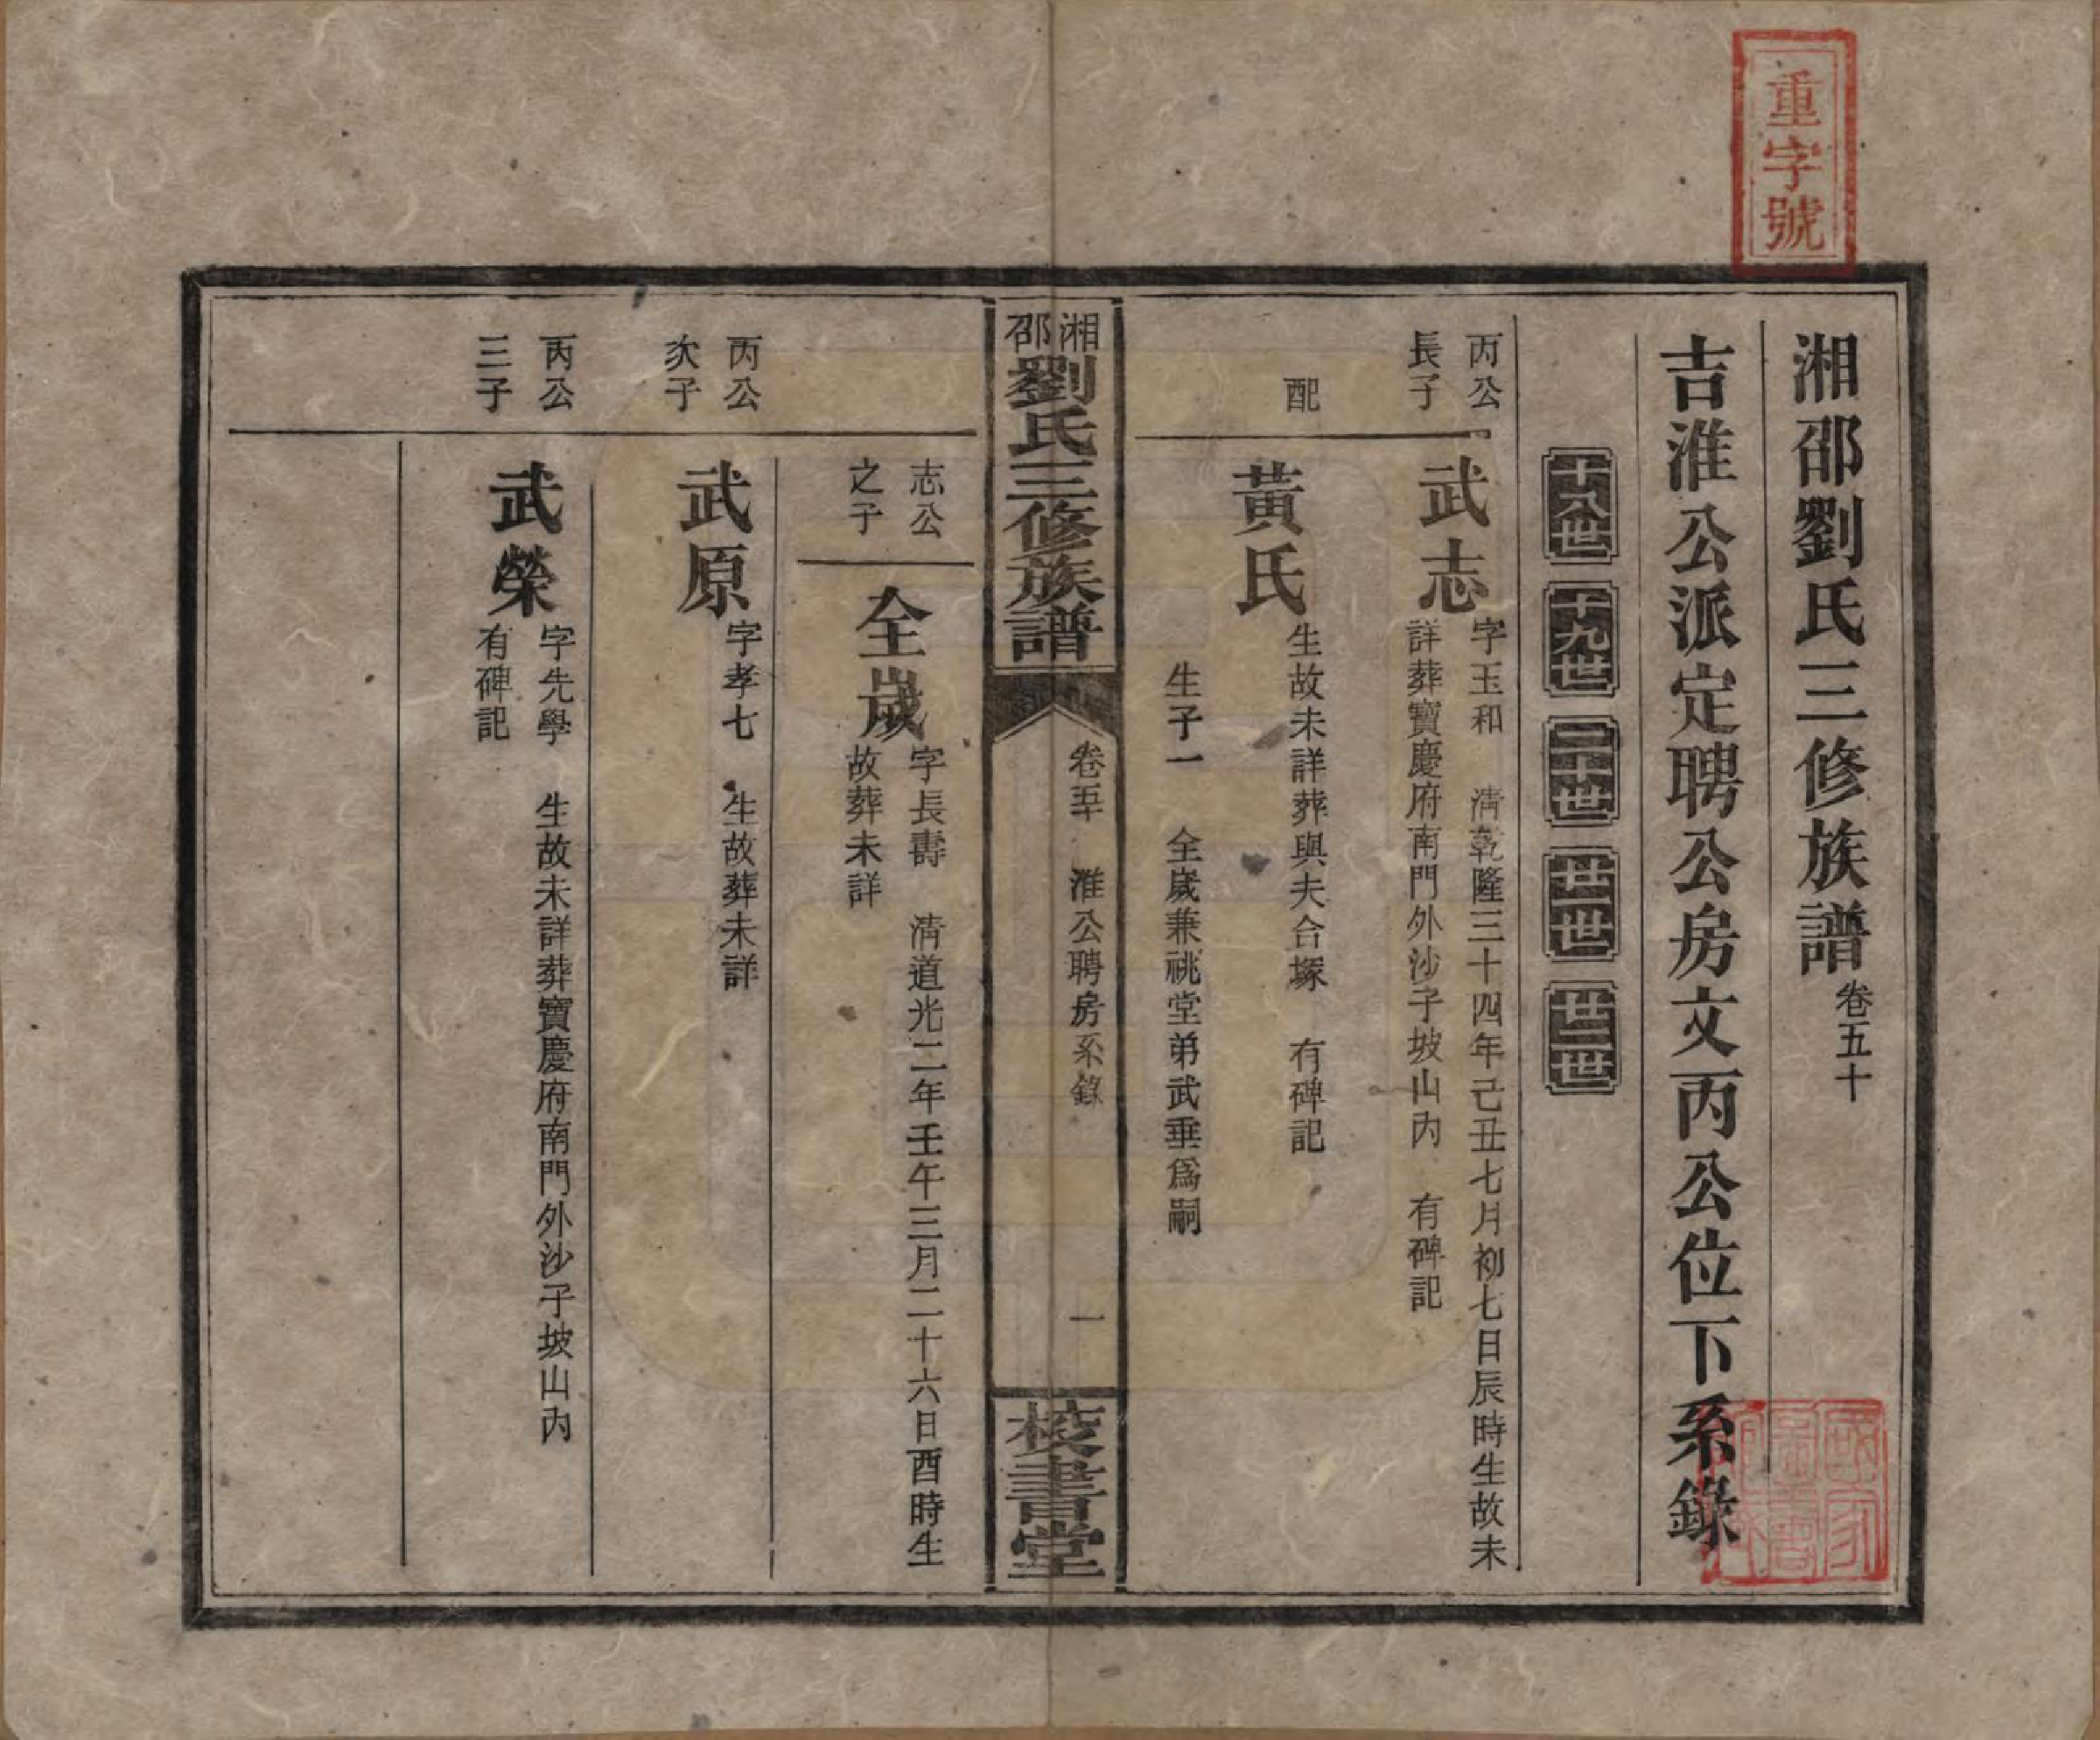 重字號
湘邵劉氏三修族譜卷五十
吉淮公派定聘公房文丙公位下系錄
十八世 十九世 二十世 廿一世 廿二世
丙公
長子
武志
字玉和 清乾隆三十四年己丑七月初七日辰時生故未
詳葬寶慶府南門外沙子坡山內 有碑記
配
黃氏
生故未詳葬與夫合塚 有碑記
生子一 全歲兼祧堂弟武垂爲嗣
湘邵劉氏三修族譜
卷五十 淮公聘房系錄
一
校書堂
志公
之子
全歲
字長壽 清道光二年壬午三月二十六日酉時生
故葬未詳
丙公
次子
武原
字孝七 生故葬未詳
丙公
三子
武榮
字先學 生故未詳葬寶慶府南門外沙子坡山內
有碑記